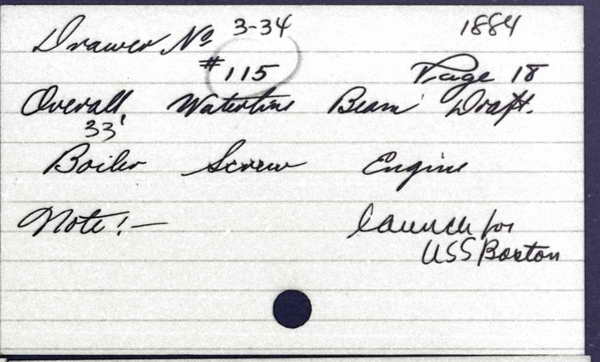 Drawer No 3-34 1884
#115 Page 18
Overall Waterline Beam Draft.
33'
Boiler Screw Engine
Note! — launch for
USS Boston